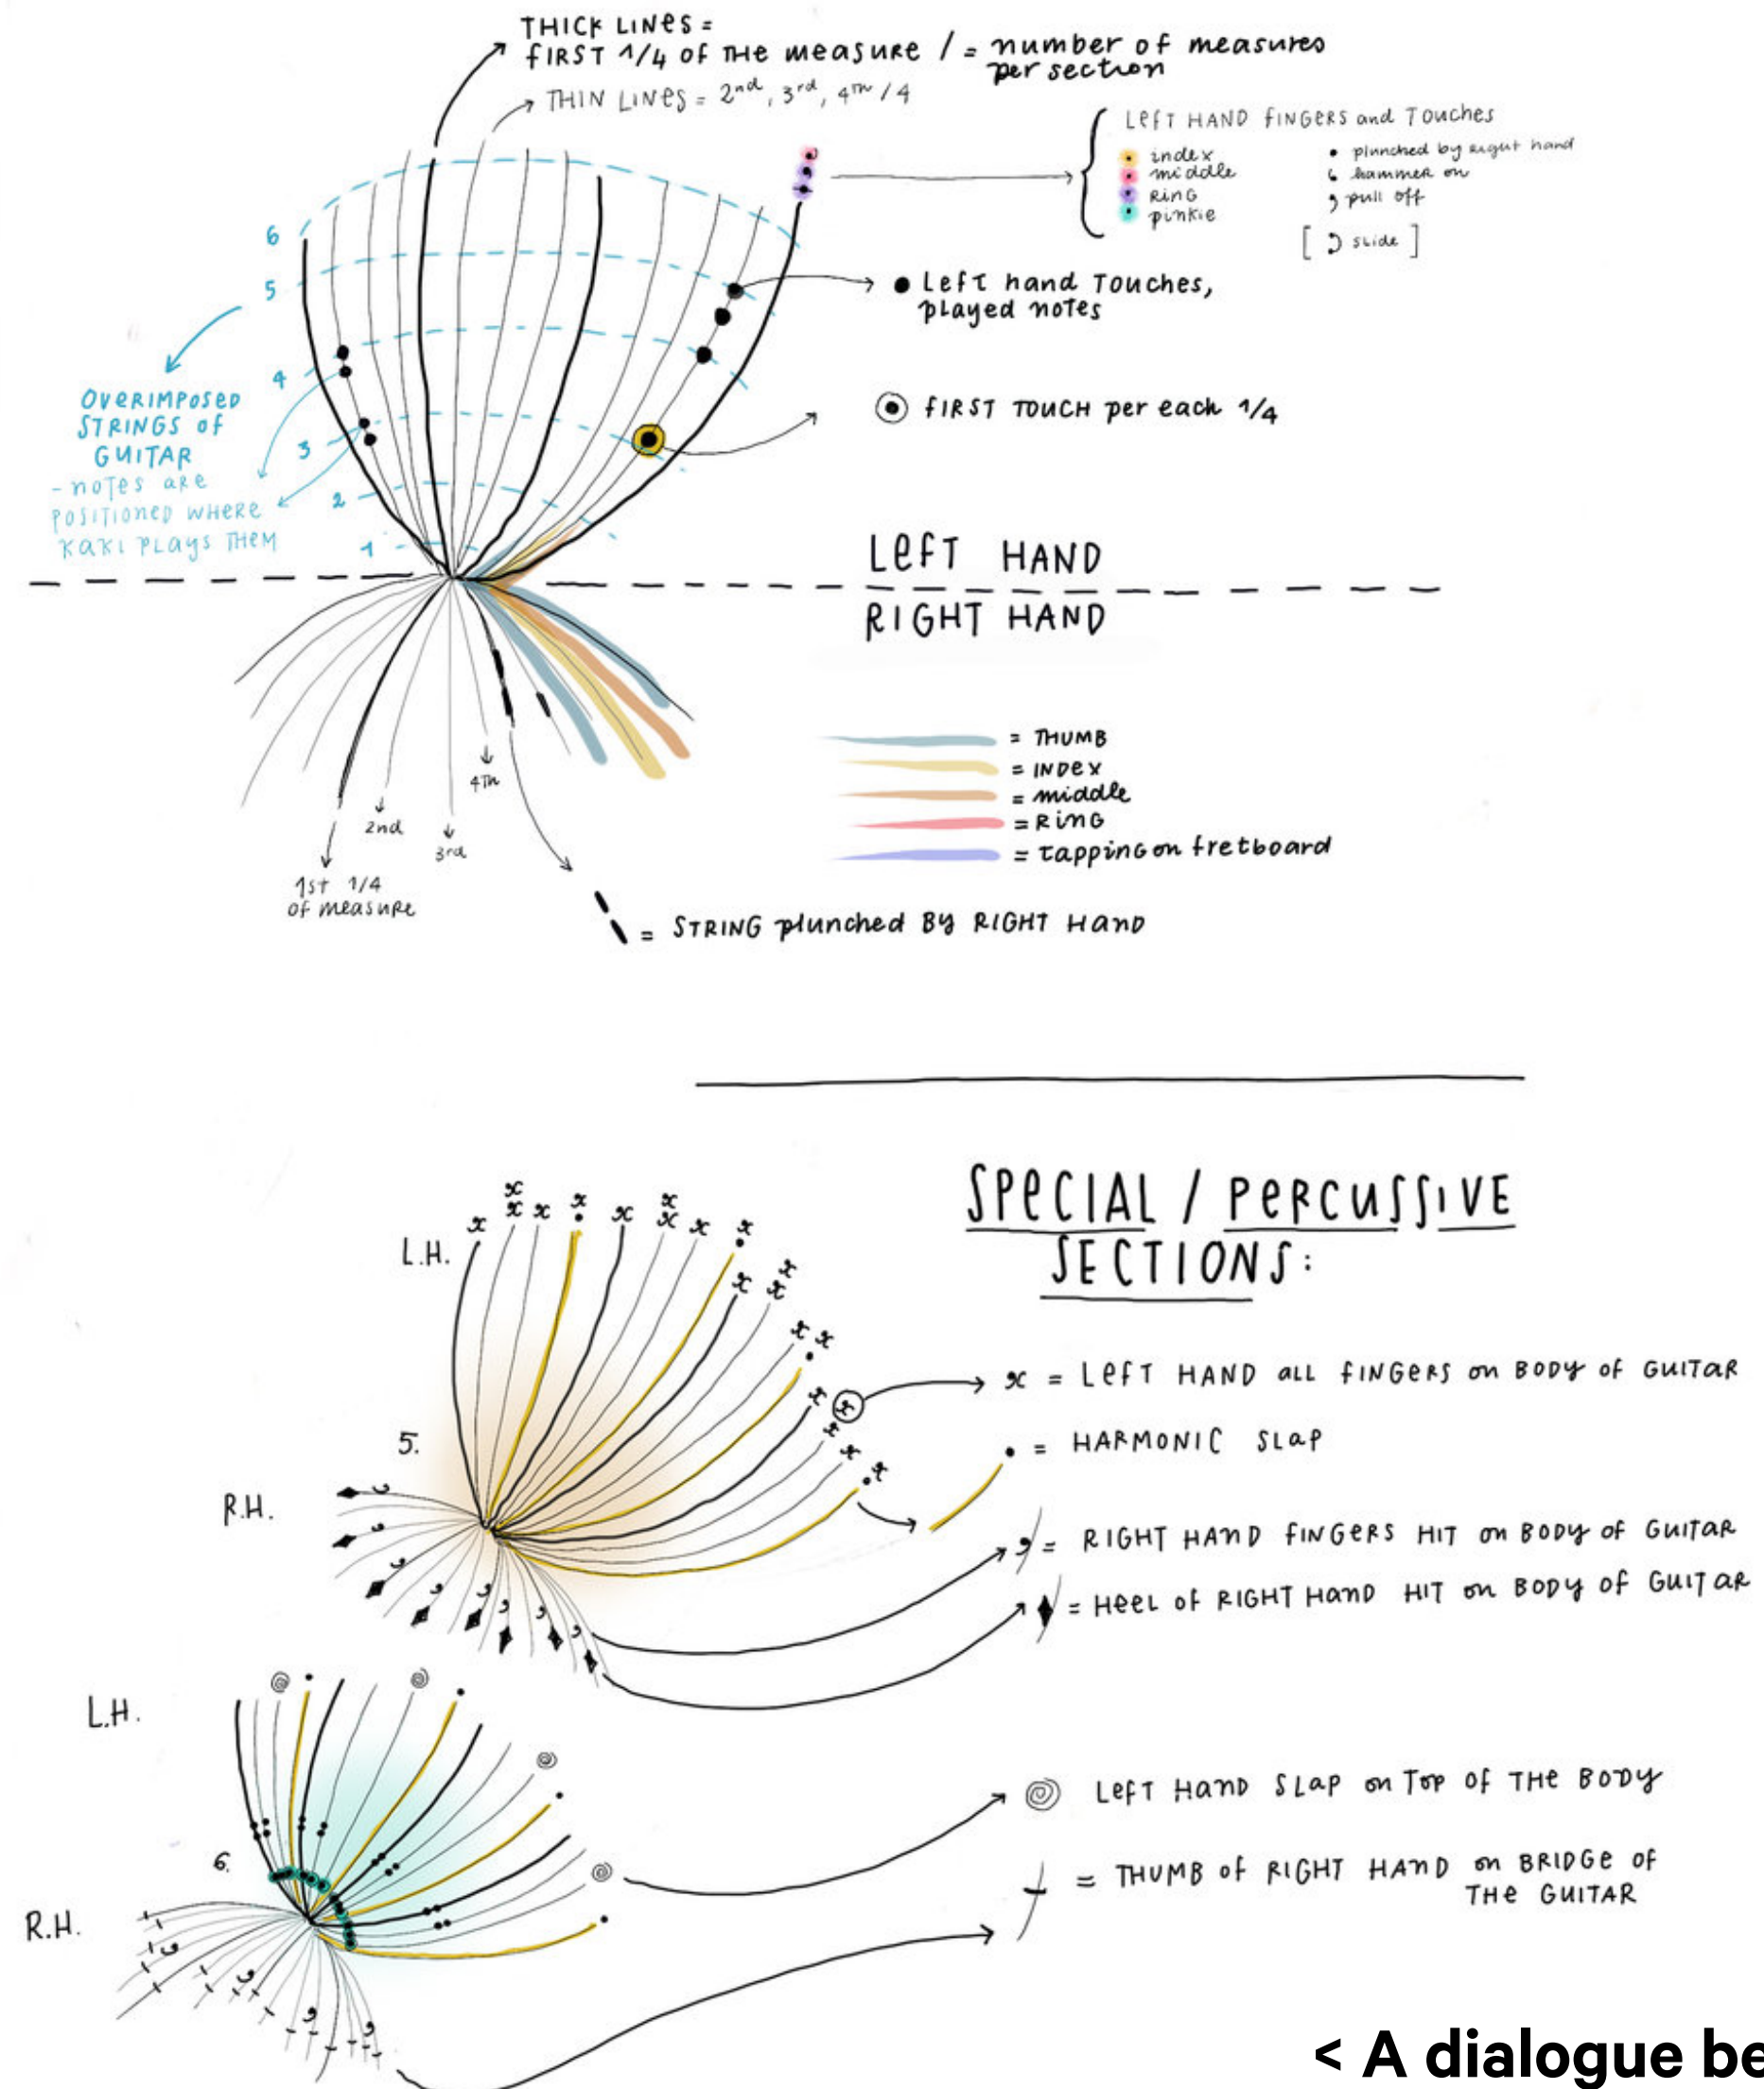 THICK LINES =
FIRST 1/4 OF THE measure / = number of measures
per section
THIN LINES = 2nd, 3rd, 4TH / 4
LEFT HAND FINGERS and TOUCHES
index
middle
RING
pinkie
plunched by RIGHT hand
hammer on
pull off
[ slide ]
6
5
4
3
2
1
OVERIMPOSED
STRINGS OF
GUITAR
- NOTES ARE
POSITIONED WHERE
KAKI PLAYS THEM
Left hand Touches,
played notes
FIRST TOUCH per each 1/4
LEFT HAND
RIGHT HAND
= THUMB
= INDEX
= middle
= RING
= tapping on fretboard
4TH
2nd
3rd
1st 1/4
of measure
= STRING plunched BY RIGHT HAND
SPECIAL / PERCUSSIVE
SECTIONS:
L.H.
5.
R.H.
x = LEFT HAND ALL FINGERS on BODY OF GUITAR
• = HARMONIC SLAP
= RIGHT HAND FINGERS HIT on BODY OF GUITAR
= HEEL OF RIGHT HAND HIT on BODY OF GUITAR
L.H.
6.
R.H.
LEFT HAND SLAP on TOP OF THE BODY
= THUMB OF RIGHT HAND on BRIDGE OF
THE GUITAR
< A dialogue be